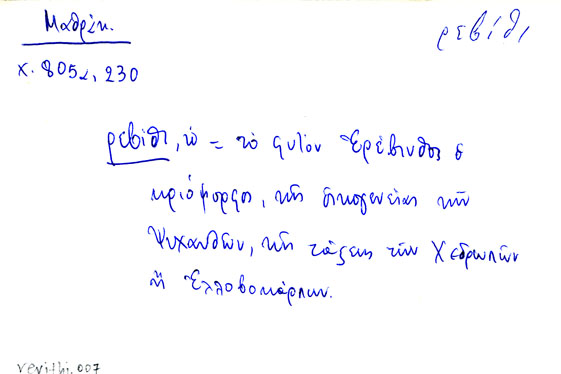 Μαθράκ.
ρεβίθι
χ. 805α, 230
ρεβίθι, τό = τὸ φυτὸν Ἐρέβινθος ὁ
κριόμορφος, τῆς οἰκογενείας τῶν
Ψυχανθῶν, τῆς τάξεως τῶν Χεδρωπῶν
ἢ Ἐλλοβοκάρπων.
revithi.007